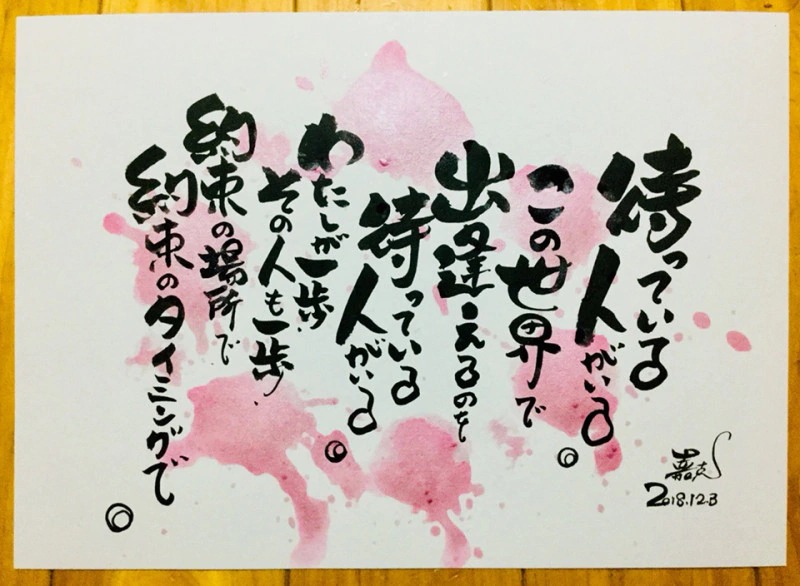 待っている
人がいる
この世界で。
出逢えるのを
待っている
人がいる。
わたしが一歩
その人も一歩
約束の場所で
約束のタイミングで。
2018.12.3